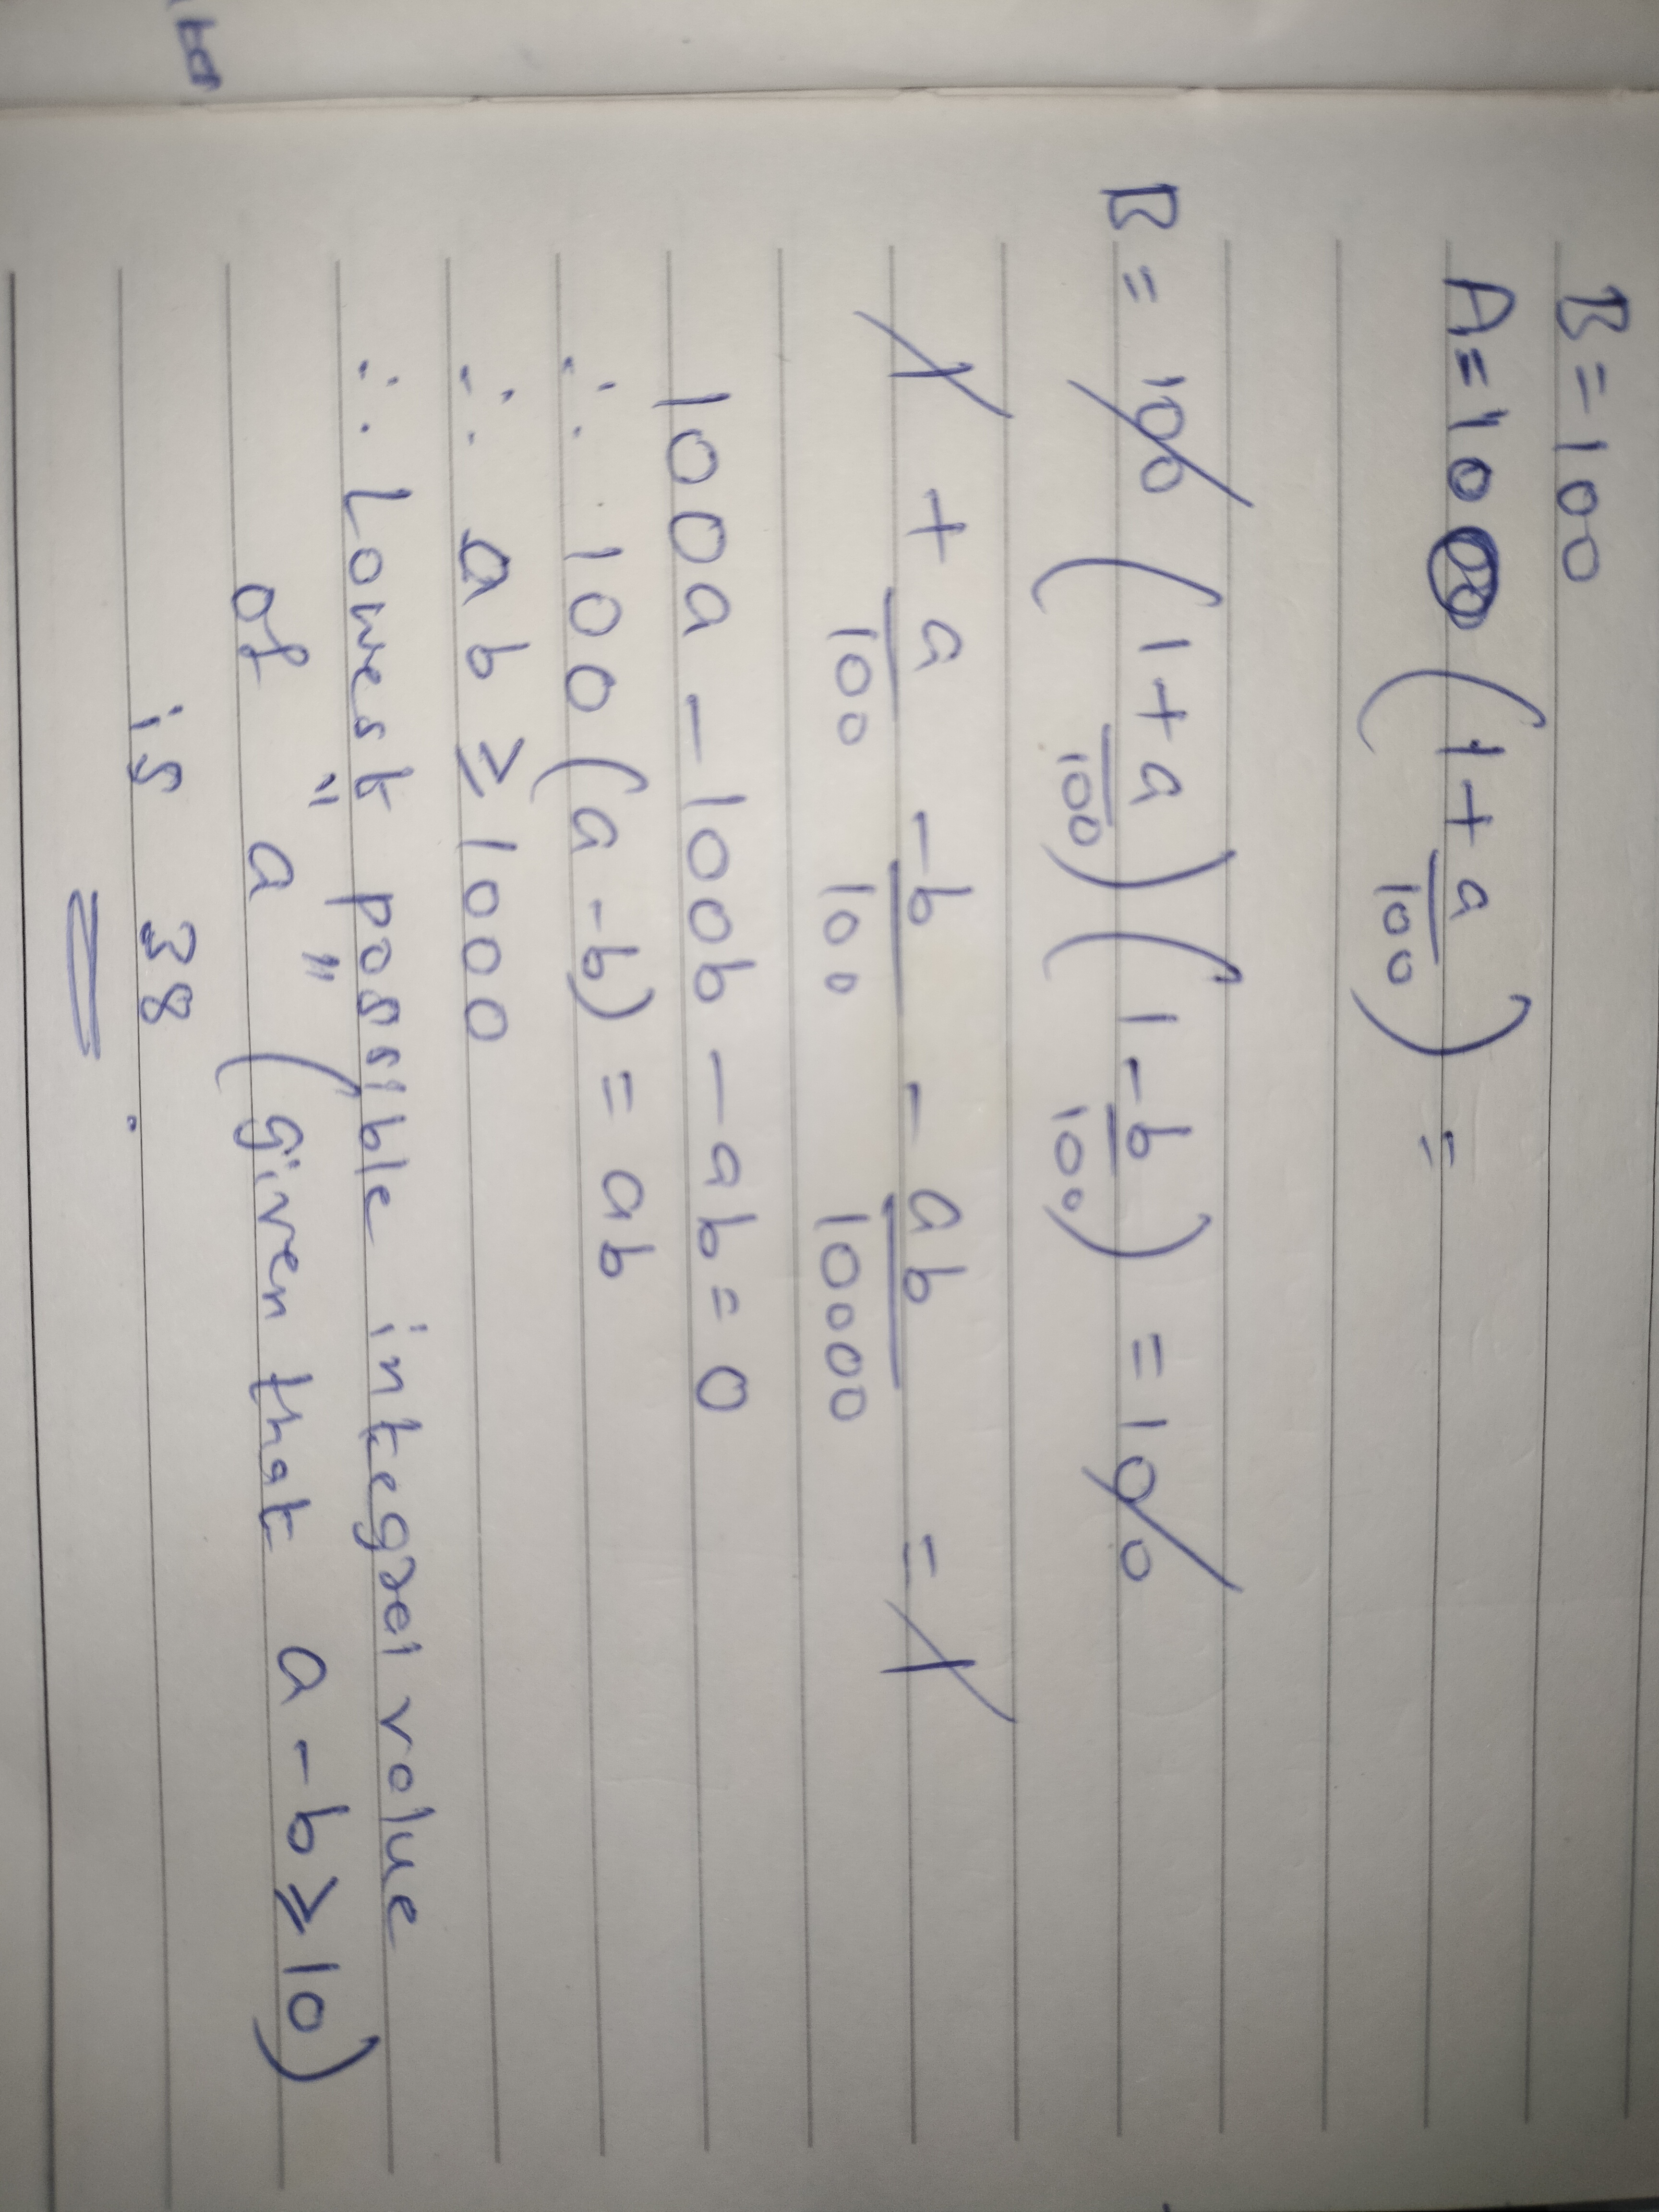 B = 100
A = 100 (1 + a/100) =
B = 100 (1 + a/100) (1 - b/100) = 100
1 + a/100 - b/100 - ab/10000 = 1
100a - 100b - ab = 0
∴ 100 (a - b) = ab
∴ ab ≥ 1000
∴ Lowest possible integral value
of "a" (given that a - b ≥ 10)
is 38.